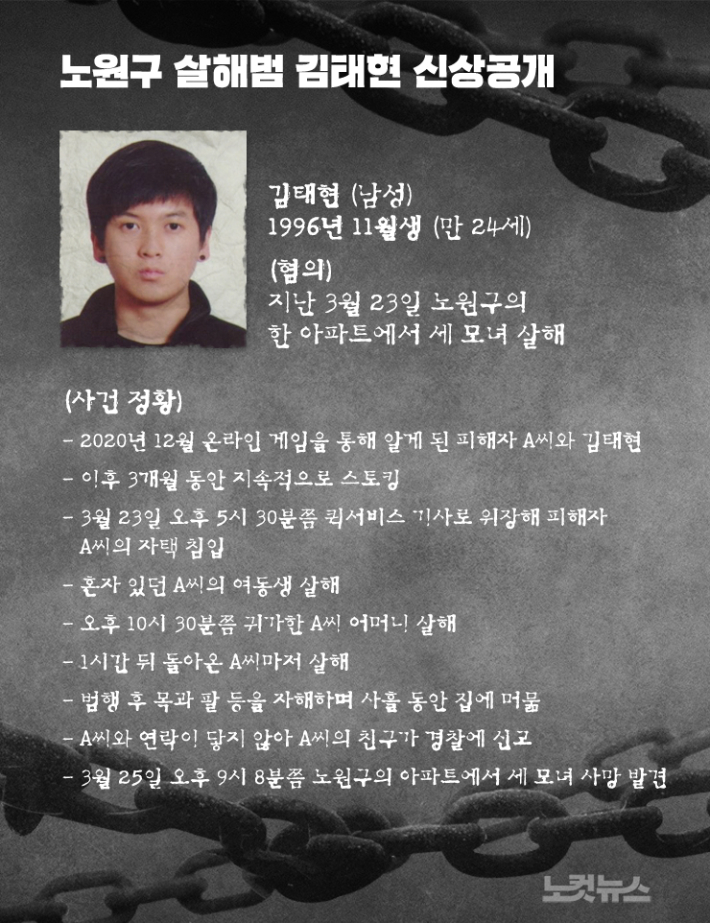 노원구 살해범 김태현 신상공개
김태현 (남성)
1996년 11월생 (만 24세)
(혐의)
지난 3월 23일 노원구의
한 아파트에서 세 모녀 살해
(사건 정황)
- 2020년 12월 온라인 게임을 통해 알게 된 피해자 A씨와 김태현
- 이후 3개월 동안 지속적으로 스토킹
- 3월 23일 오후 5시 30분쯤 퀵서비스 기사로 위장해 피해자
A씨의 자택 침입
- 혼자 있던 A씨의 여동생 살해
- 오후 10시 30분쯤 귀가한 A씨 어머니 살해
- 1시간 뒤 돌아온 A씨마저 살해
- 범행 후 목과 팔 등을 자해하며 사흘 동안 집에 머묾
- A씨와 연락이 닿지 않아 A씨의 친구가 경찰에 신고
- 3월 25일 오후 9시 8분쯤 노원구의 아파트에서 세 모녀 사망 발견
노컷뉴스